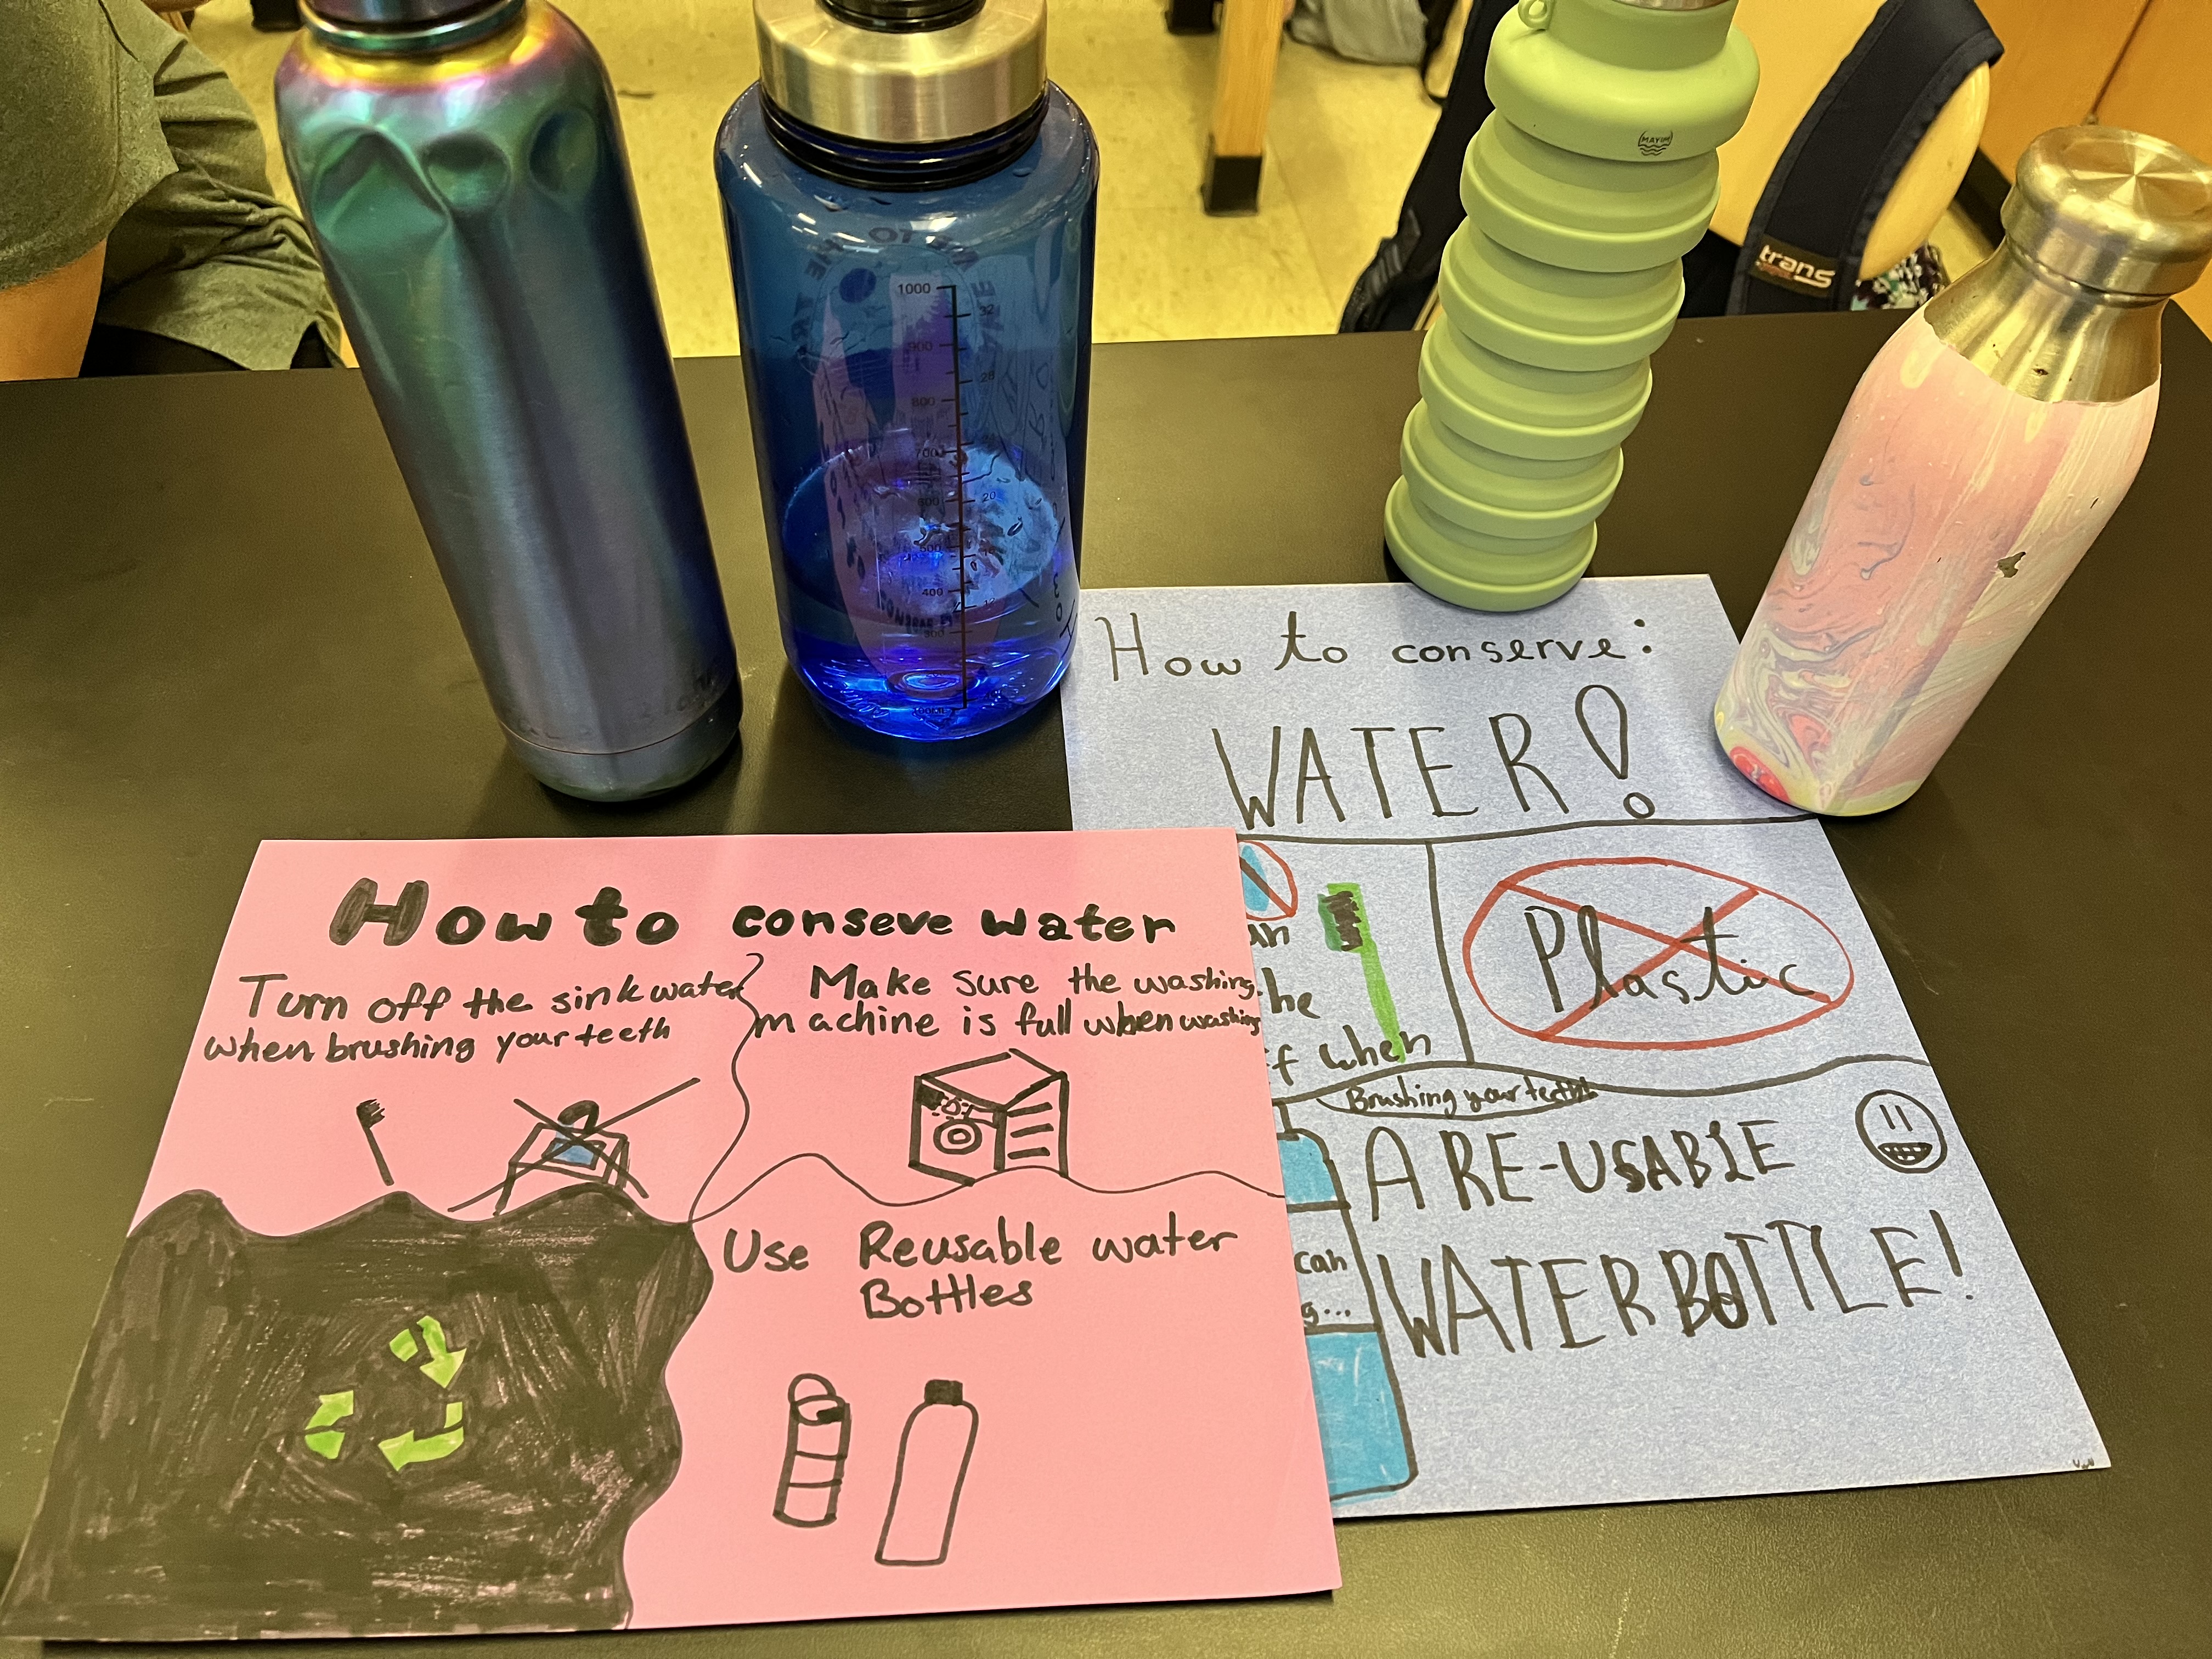 MAYIM
trans
1000
32
900
28
800
700
600
20
500
400
12
300
How to conserve:
WATER!
Plastic
he
f when
Brushing your teeth!
A RE-USABLE
WATER BOTTLE!
can
g...
How to conseve water
Turn off the sink water
when brushing your teeth
Make sure the washing
machine is full when washing
Use Reusable water
Bottles